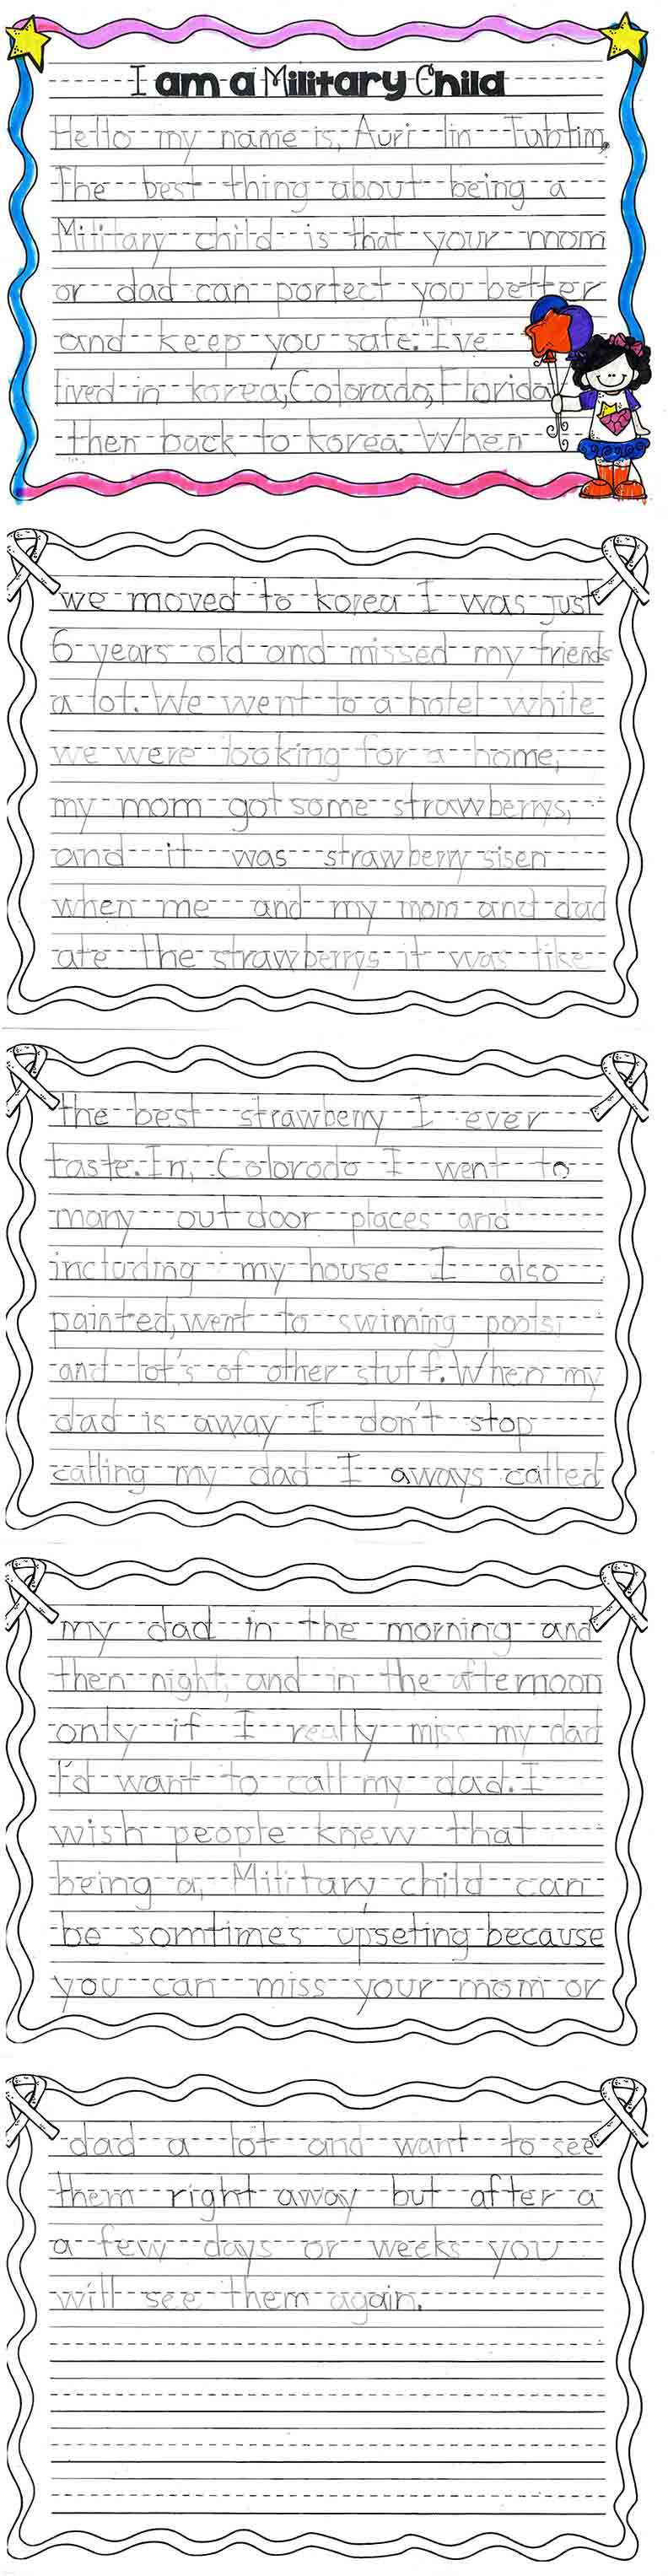 I am a Military Child
Hello my name is, Auri lin Tubtim,
The best thing about being a
Military child is that your mom
or dad can portect you better
and keep you safe." I've
lived in korea, Colorado, Florida
then back to korea. When
we moved to korea I was just
6 years old and missed my friends
a lot. We went to a hotel while
we were looking for a home,
my mom got some strawberrys,
and it was strawberry sisen
when me and my mom and dad
ate the strawberrys it was like
the best strawberry I ever
taste. In, Colorodo I went to
many out door places and
including my house I also
painted, went to swiming pools,
and lot's of other stuff. When my
dad is away I don't stop
calling my dad I aways called
my dad in the morning and
then night, and in the afternoon
only if I really miss my dad
I'd want to call my dad. I
wish people knew that
being a, Military child can
be somtimes upseting because
you can miss your mom or
dad a lot and want to see
them right away but after a
a few days or weeks you
will see them again.